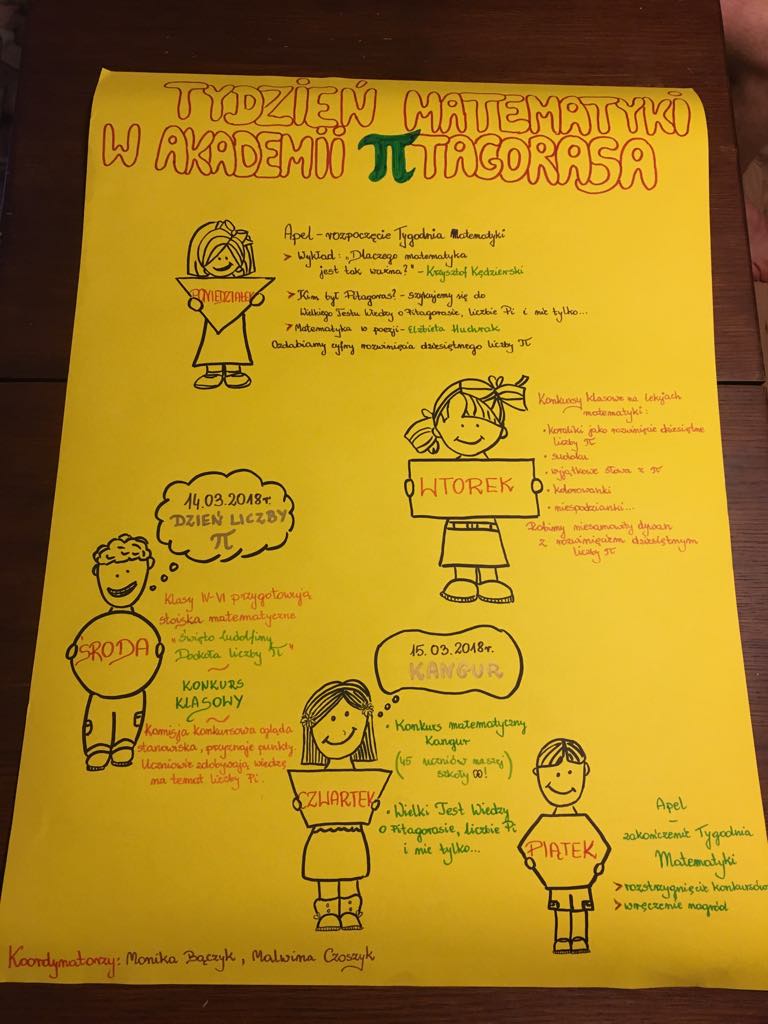 TYDZIEŃ MATEMATYKI
W AKADEMII πTAGORASA
Apel - rozpoczęcie Tygodnia Matematyki
➤ Wykład: „Dlaczego matematyka
jest tak ważna?" - Krzysztof Kędzierski
➤ Kim był Pitagoras? - szykujemy się do
Wielkiego Testu Wiedzy o Pitagorasie, liczbie Pi i nie tylko...
➤ Matematyka w poezji - Elżbieta
Ozdabiamy cyfry rozwinięcia dziesiętnego liczby π
PONIEDZIAŁEK
Konkursy klasowe na lekcjach
matematyki:
• koraliki jako rozwinięcie dziesiętne
liczby π
• sudoku
• wyjątkowe słowa z π
• kolorowanki
• niespodzianki...
Robimy niesamowity dywan
z rozwinięciem dziesiętnym
liczby π
WTOREK
14.03.2018r.
DZIEŃ LICZBY
π
ŚRODA
Klasy IV-VI przygotowują
stoiska matematyczne
„Święto ludolfiny
Dookoła liczby π"
~
KONKURS
KLASOWY
~
Komisja konkursowa ogląda
stanowiska, przyznaje punkty.
Uczniowie zdobywają wiedzę
na temat liczby Pi.
15.03.2018r.
KANGUR
CZWARTEK
• Konkurs matematyczny
Kangur
(45 uczniów naszej
szkoły !)
• Wielki Test Wiedzy
o Pitagorasie, liczbie Pi
i nie tylko...
PIĄTEK
Apel
–
zakończenie Tygodnia
Matematyki
➤ rozstrzygnięcie konkursów
➤ wręczenie nagród
Koordynatorzy: Monika Bączyk, Malwina Czoszyk